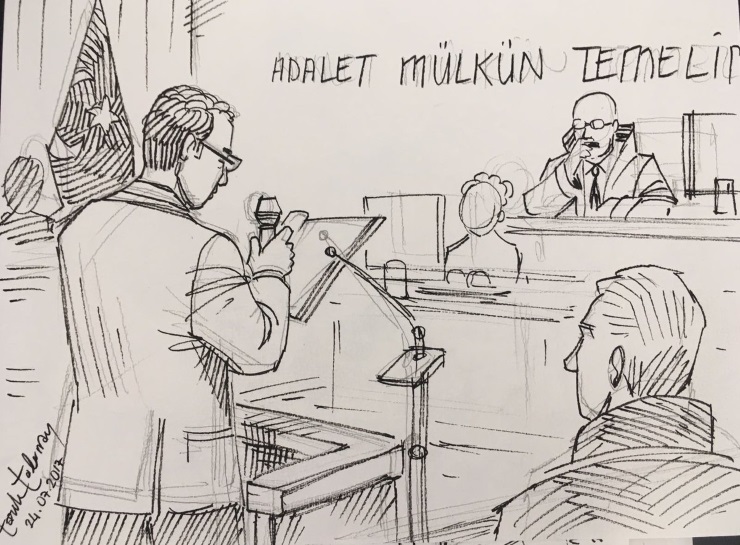 ADALET MÜLKÜN TEMELİ
24.07.2017